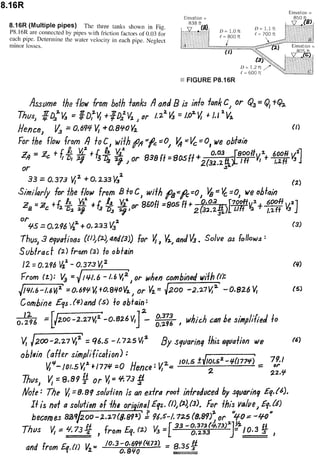 8.16R
8.16R (Multiple pipes) The three tanks shown in Fig.
P8.16R are connected by pipes with friction factors of 0.03 for
each pipe. Determine the water velocity in each pipe. Neglect
minor losses.
Elevation =
838 ft
(A)
D = 1.0 ft
ℓ = 800 ft
D = 1.1 ft
ℓ = 700 ft
Elevation =
850 ft
(B)
(1)
(2)
Elevation =
805 ft
(C)
D = 1.2 ft
ℓ = 600 ft
(3)
■ FIGURE P8.16R
Assume the flow from both tanks A and B is into tank C, or Q₃ = Q₁ + Q₂
Thus, π/4 D₃² V₃ = π/4 D₁² V₁ + π/4 D₂² V₂, or 1.2² V₃ = 1.0² V₁ + 1.1² V₂
Hence, V₃ = 0.694 V₁ + 0.840 V₂ (1)
For the flow from A to C, with p_A = p_C = 0, V_A = V_C = 0, we obtain
z_A = z_C + f₁ ℓ₁/D₁ V₁²/2g + f₃ ℓ₃/D₃ V₃²/2g, or 838 ft = 805 ft + 0.03/2(32.2 ft/s²) [800ft/1ft V₁² + 600ft/1.2ft V₃²]
or
33 = 0.373 V₁² + 0.233 V₃² (2)
Similarly for the flow from B to C, with p_B = p_C = 0, V_B = V_C = 0, we obtain
z_B = z_C + f₂ ℓ₂/D₂ V₂²/2g + f₃ ℓ₃/D₃ V₃²/2g, or 850 ft = 805 ft + /2(32.2 ft/s²) [700ft/1.1ft V₂² + 600ft/1.2ft V₃²]
or
45 = 0.296 V₂² + 0.233 V₃² (3)
Thus, 3 equations ((1), (2), and (3)) for V₁, V₂, and V₃. Solve as follows:
Subtract (2) from (3) to obtain
12 = 0.296 V₂² - 0.373 V₁² (4)
From (2): V₃ = √141.6 - 1.6 V₁², or when combined with (1):
√141.6 - 1.6V₁² = 0.694 V₁ + 0.840 V₂, or V₂ = √200 - 2.27V₁² - 0.826 V₁ (5)
Combine Eqs. (4) and (5) to obtain:
12/0.296 = [√200 - 2.27V₁² - 0.826 V₁]² - 0.373/0.296 , which can be simplified to
V₁ √200 - 2.27 V₁² = 96.5 - 1.725 V₁² By squaring this equation we (6)
obtain (after simplification):
V₁⁴ - 101.5 V₁² + 1774 = 0 Hence: V₁² = 101.5 ± √101.5² - 4(1774) / 2 = 79.1 or 22.4
Thus, V₁ = 8.89 ft/s or V₁ = 4.73 ft/s
Note: The V₁ = 8.89 solution is an extra root introduced by squaring Eq. (6).
It is not a solution of the original Eqs. (1), (2), (3). For this value, Eq. (6)
becomes 8.89 √200 - 2.27 (8.89²) = 96.5 - 1.725 (8.89)², or "40 = -40"
Thus V₁ = 4.73 ft/s, from Eq. (2) V₃ = [33 - 0.373 (4.73)²/0.233]^½ = 10.3 ft/s,
and from Eq. (1) V₂ = 10.3 - 0.694 (4.73)/0.840 = 8.35 ft/s